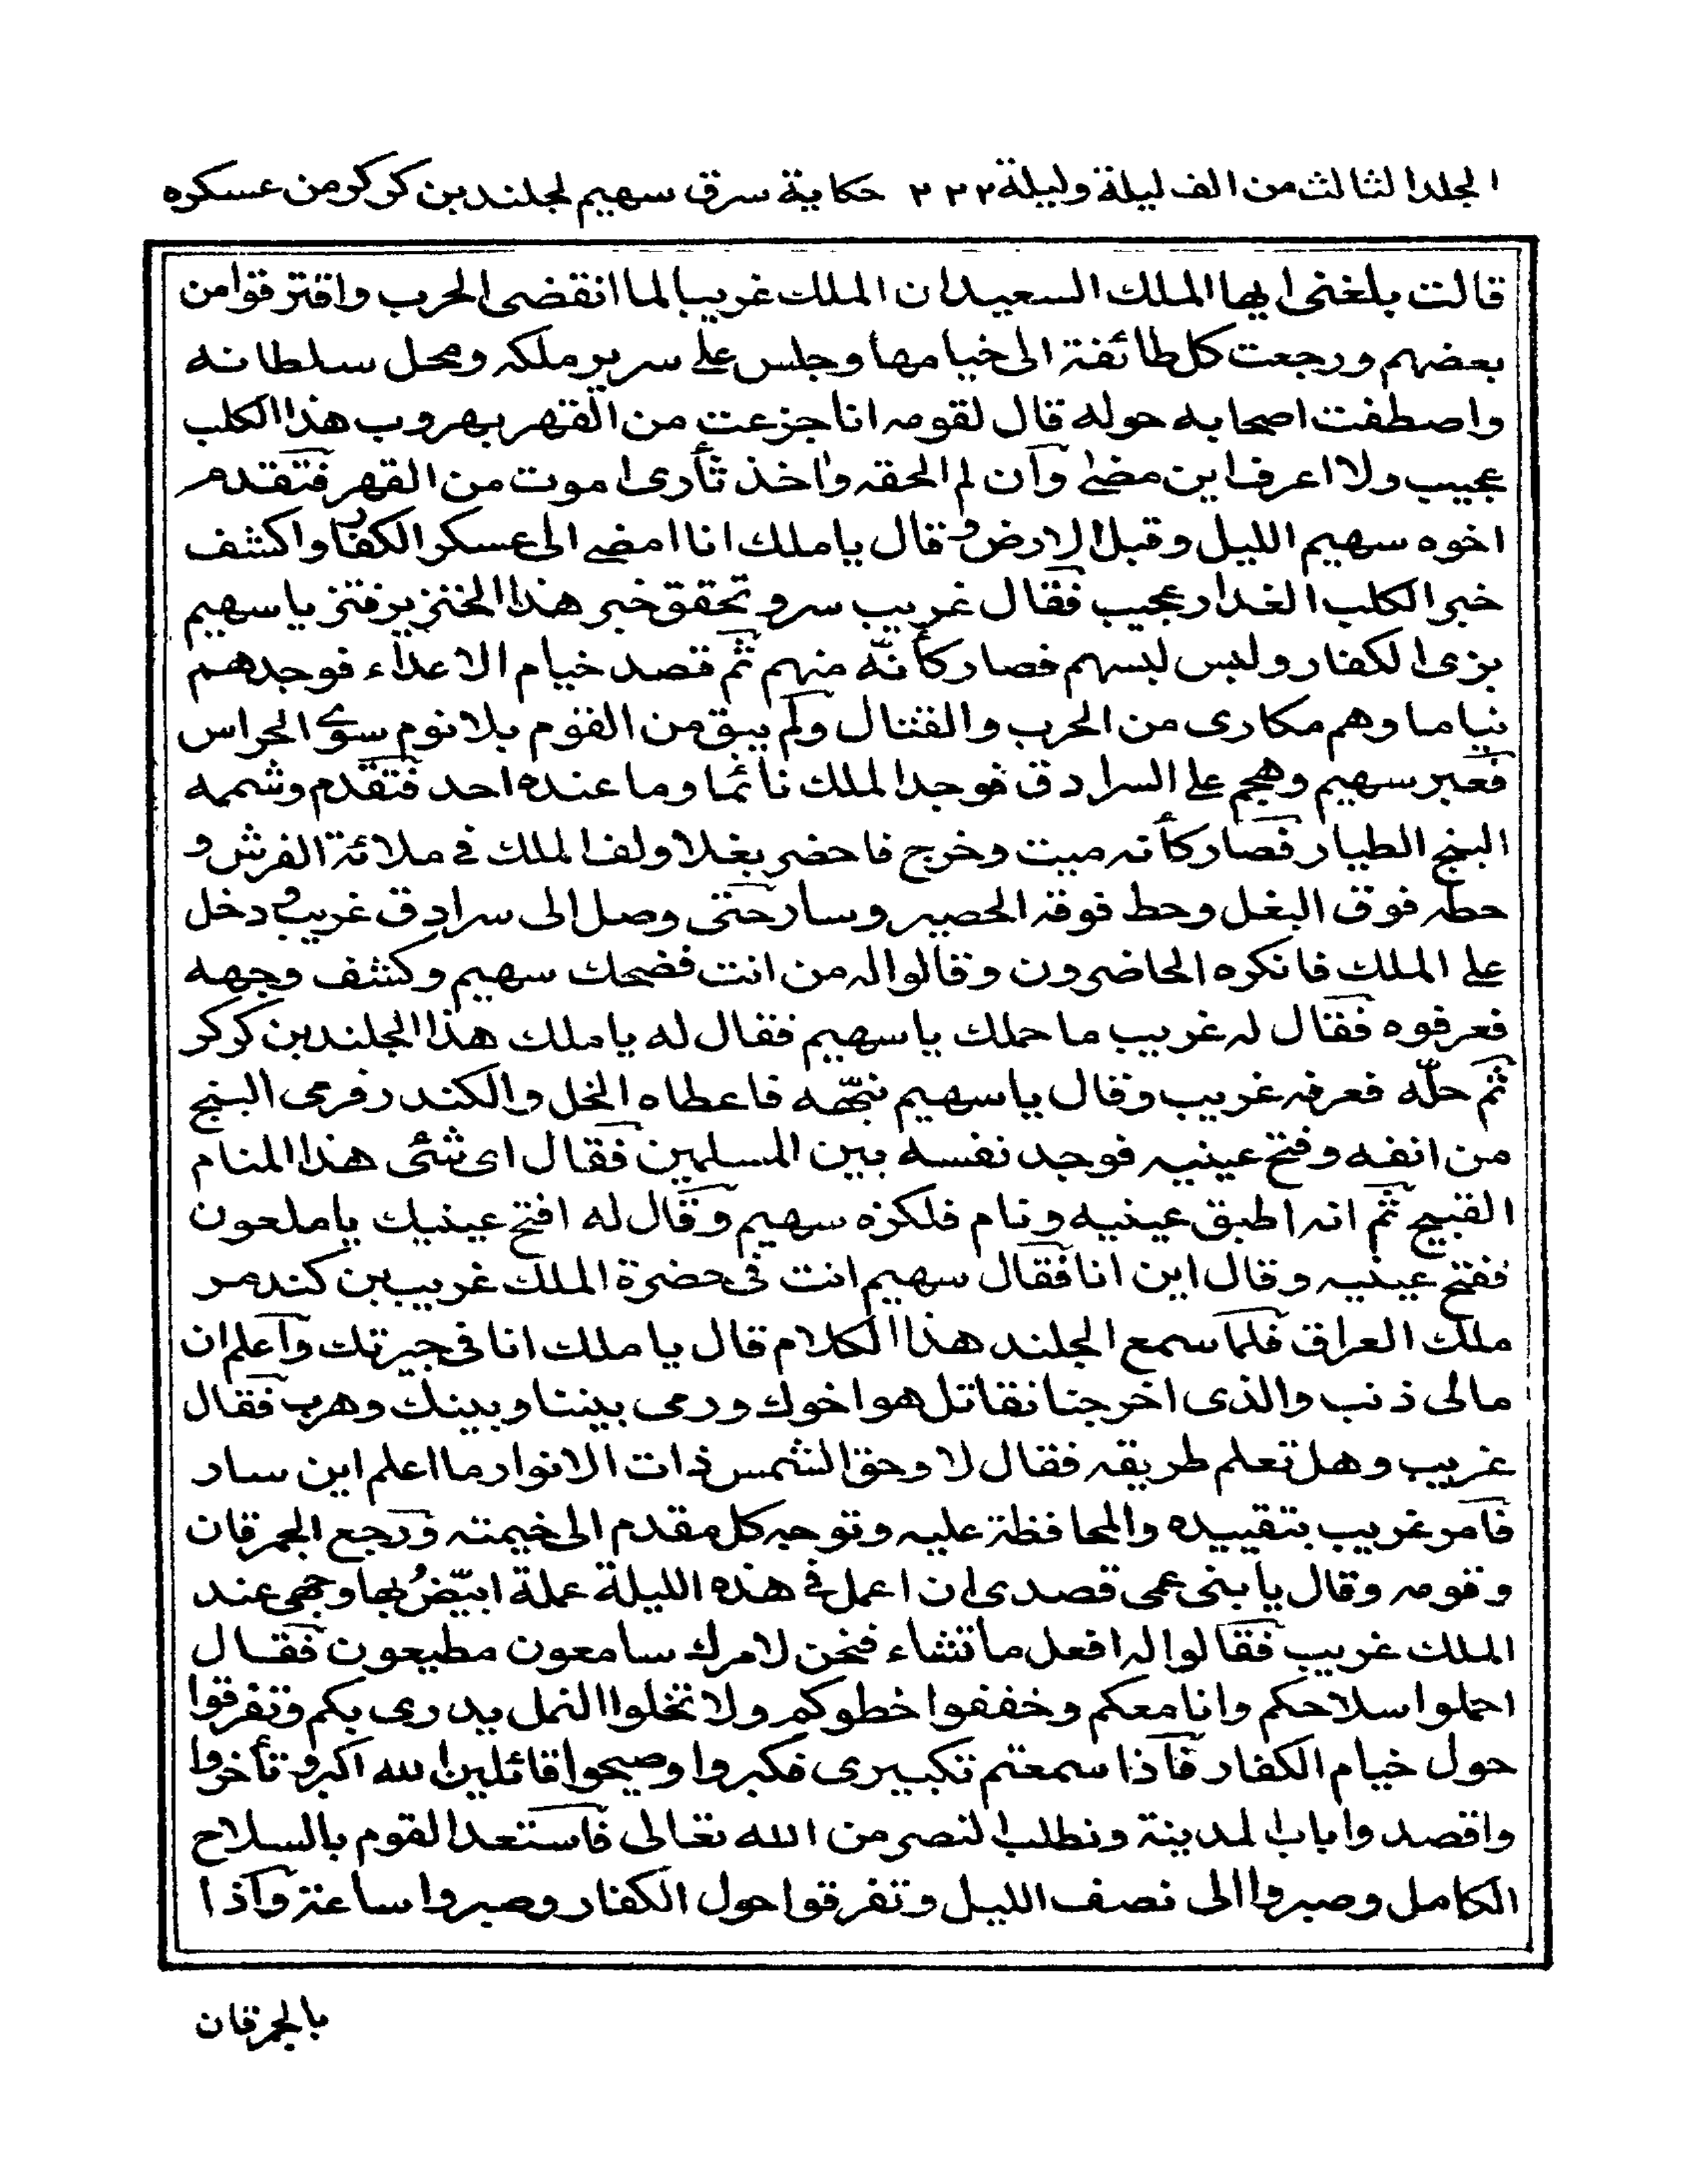 المجلد الثالث من الف ليلة وليلة ٢٢٢ حكاية سرق سهيم لجلند بن كركر من عسكره
قالت بلغني ايها الملك السعيد ان الملك غريبا لما انقضى الحرب وافترقوا من
بعضهم ورجعت كل طائفة الى خيامها وجلس على سرير ملكه ومحل سلطانه
واصطفت اصحابه حوله قال لقومه انا جزعت من القهر بهروب هذا الكلب
عجيب ولا اعرف اين مضى وان لم الحقه واخذ ثأرى اموت من القهر فتقدم
اخوه سهيم الليل وقبل الارض و قال يا ملك انا امضى الى عسكر الكفار واكشف
خبر الكلب الغدار عجيب فقال غريب سر و تحقق خبر هذا الخنزير فتز يا سهيم
بزى الكفار ولبس لبسهم فصار كأنّه منهم ثم قصد خيام الاعداء فوجدهم
نياما وهم مكارى من الحرب والقتال ولم يبق من القوم بلا نوم سوى الحراس
فعبر سهيم وهجم على السرادق فوجد الملك نائما وما عنده احد فتقدم وشممه
البنج الطيار فصار كأنه ميت وخرج فاحضر بغلا ولف الملك في ملائة الفرش و
حطه فوق البغل وحط فوقه الحصير وسار حتى وصل الى سرادق غريب و دخل
على الملك فانكره الحاضرون وقالوا له من انت فضحك سهيم وكشف وجهه
فعرفوه فقال له غريب ما حملك يا سهيم فقال له يا ملك هذا الجلند بن كركر
ثم حلّه فعرفه غريب وقال يا سهيم نبّهه فاعطاه الخل والكندر فرمى البنج
من انفه وفتح عينيه فوجد نفسه بين المسلمين فقال اى شئى هذا المنام
القبيح ثم انه اطبق عينيه ونام فلكزه سهيم وقال له افتح عينيك يا ملعون
ففتح عينيه وقال اين انا فقال سهيم انت فى حضرة الملك غريب بن كندمر
ملك العراق فلما سمع الجلند هذا الكلام قال يا ملك انا فى جيرتك واعلم ان
مالى ذنب والذى اخرجنا نقاتل هو اخوك ورمى بيننا وبينك وهرب فقال
غريب وهل تعلم طريقه فقال لا وحق الشمس ذات الانوار ما اعلم اين سار
فامر غريب بتقييده والمحافظة عليه وتوجه كل مقدم الى خيمته ورجع الجمرقان
وقومه وقال يا بنى عمى قصدى ان اعمل في هذه الليلة عملة ابيّضُ بها وجهى عند
الملك غريب فقالوا له افعل ما تشاء فنحن لامرك سامعون مطيعون فقال
احملوا سلاحكم وانا معكم وخففوا خطوكم ولا تخلوا النمل يدرى بكم وتفرقوا
حول خيام الكفار فاذا سمعتم تكبيرى فكبروا وصيحوا قائلين الله اكبر و تأخروا
واقصدوا باب المدينة ونطلب النصر من الله تعالى فاستعد القوم بالسلاح
الكامل وصبروا الى نصف الليل وتفرقوا حول الكفار وصبروا ساعة واذا
بالجمرقان